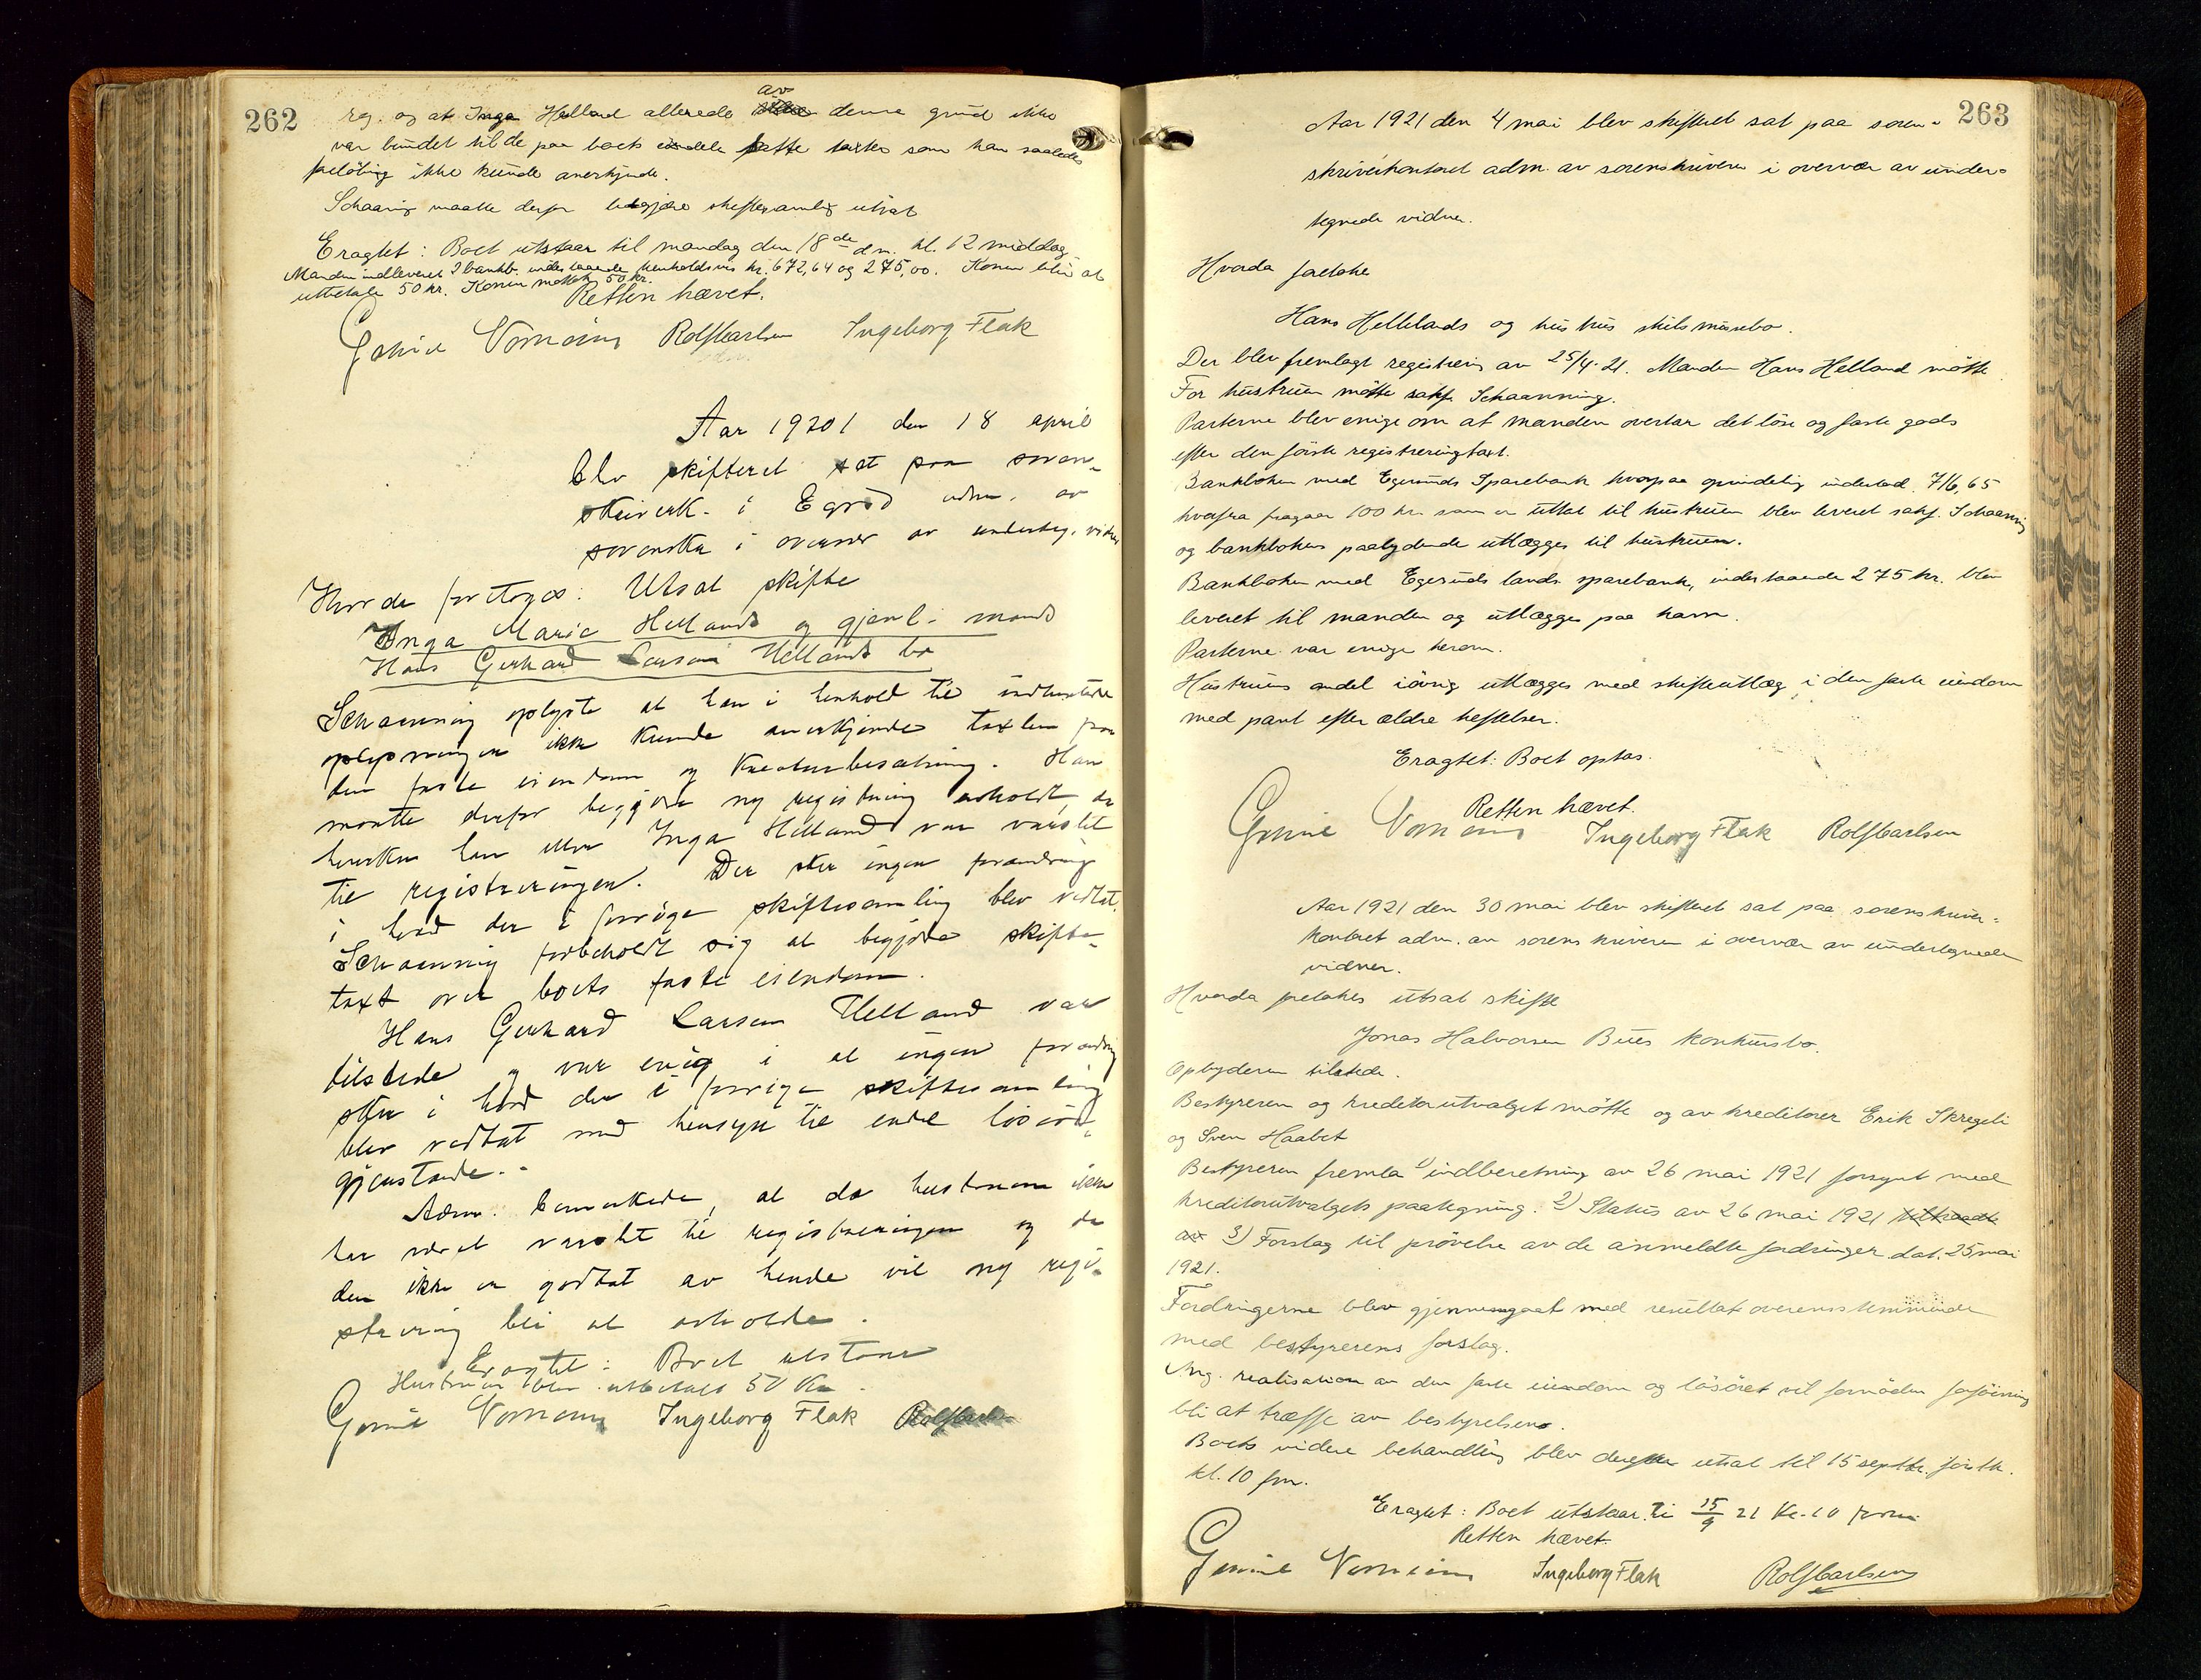 262
reg. og at Inga Helland allerede av denne grund ikke
var bundet til de paa boets eiendele satte takster som han saaledes
foreløbig ikke kunde anerkjende.
Schaaning maatte derfor begjære skiftesamling utsat
Eragtet: Boet utstaar til mandag den 18de d.m. kl. 12 middag.
Manden indleveret 2 bankb. indestaaende henholdsvis kr. 672,64 og 275,00. Konen blir at
utbetale 50 kr. Konen mottok 50 kr.
Retten hævet.
Rolf Carlsen Ingeborg Flak
Aar 19201 den 18 april
blev skifteret sat paa soren-
skriverk. i Egrsd adm. av
sorenskr. i overvær av underteg. vidner
Hvorda foretoges: Utsat skifte
Inga Marie Hellands og gjenl. mands
Hans Gerhard Larsen Hellands bo
Schaanning oplyste at han i henhold til indhentede
oplysninger ikke kunde anerkjende taxten paa
den faste eiendom og kreaturbesætning. Han
maatte derfor begjære ny registrering avholdt, da
hverken han eller Inga Helland var varslet
til registreringen. Der sker ingen forandring
i hvad der i forrige skiftesamling blev vedtat.
Schaanning forbeholdt sig at begjære skifte-
taxt over boets faste eiendom.
Hans Gerhard Larsen Helland var
tilstede og var enig i at ingen forandring
sker i hvad der i forrige skiftesamling
blev vedtat med hensyn til endel løsøre-
gjenstande.-
Adm. bemerkede, at da hustruen ikke
har været varslet til registreringen og da
den ikke er godtat av hende vil ny regi-
strering bli at avholde.
Eragtet: Boet utstaar
Hustruen blev utbetalt 50 kr.
Ingeborg Flak Rolf Carlsen
263
Aar 1921 den 4 mai blev skifteret sat paa soren-
skriverkontoret adm. av sorenskriveren i overvær av under-
tegnede vidner.
Hvorda foretokes
Hans Hellelands og hustrus skilsmissebo.
Der blev fremlagt registrering av 25/4-21. Manden Hans Helland møtte
For hustruen møtte sakf. Schaanning.
Parterne blev enige om at manden overtar det løse og faste gods
efter den første registreringstaxt.
Bankboken med Egersunds Sparebank hvorpaa oprindelig indestod 716,65
hvorfra fragaar 100 kr. som er uttat til hustruen blev leveret sakf. Schaaning
og bankbokens paalydende utlægges til hustruen.
Bankboken med Egersunds lands sparebank, indestaaende 275 kr. blev
leveret til manden og utlægges paa ham.
Parterne var enige herom.
Hustruens andel iøvrig utlægges med skifteutlæg i den faste eiendom
med pant efter ældre heftelser.
Eragtet: Boet optas.
Retten hævet.
Ingeborg Flak Rolf Carlsen
Aar 1921 den 30 mai blev skifteret sat paa sorenskriver-
kontoret adm. av sorenskriveren i overvær av undertegnede
vidner.
Hvorda foretokes utsat skifte
Jonas Halvorsen Bues konkursbo.
Opbyderen tilstede.
Bestyreren og kreditorutvalget møtte og av kreditorer Erik Skregeli
og Sven Haabet
Bestyreren fremla 1) indberetning av 26 mai 1921 forsynt med
kreditorutvalgets paategning. 2) Status av 26 mai 1921
3) Forslag til prøvelse av de anmeldte fordringer dat. 25 mai
1921.
Fordringerne blev gjennemgaat med resultat overensstemmende
med bestyrerens forslag.
Ang. realisation av den faste eiendom og løsøret vil fornøden føining
bli at træffe av bestyrelsen.
Boets videre behandling blev derefter utsat til 15 septbr. førstk.
kl. 10 fm.
Eragtet: Boet utstaar til 15/9 21 kl. 10 form.
Retten hævet.
Ingeborg Flak Rolf Carlsen